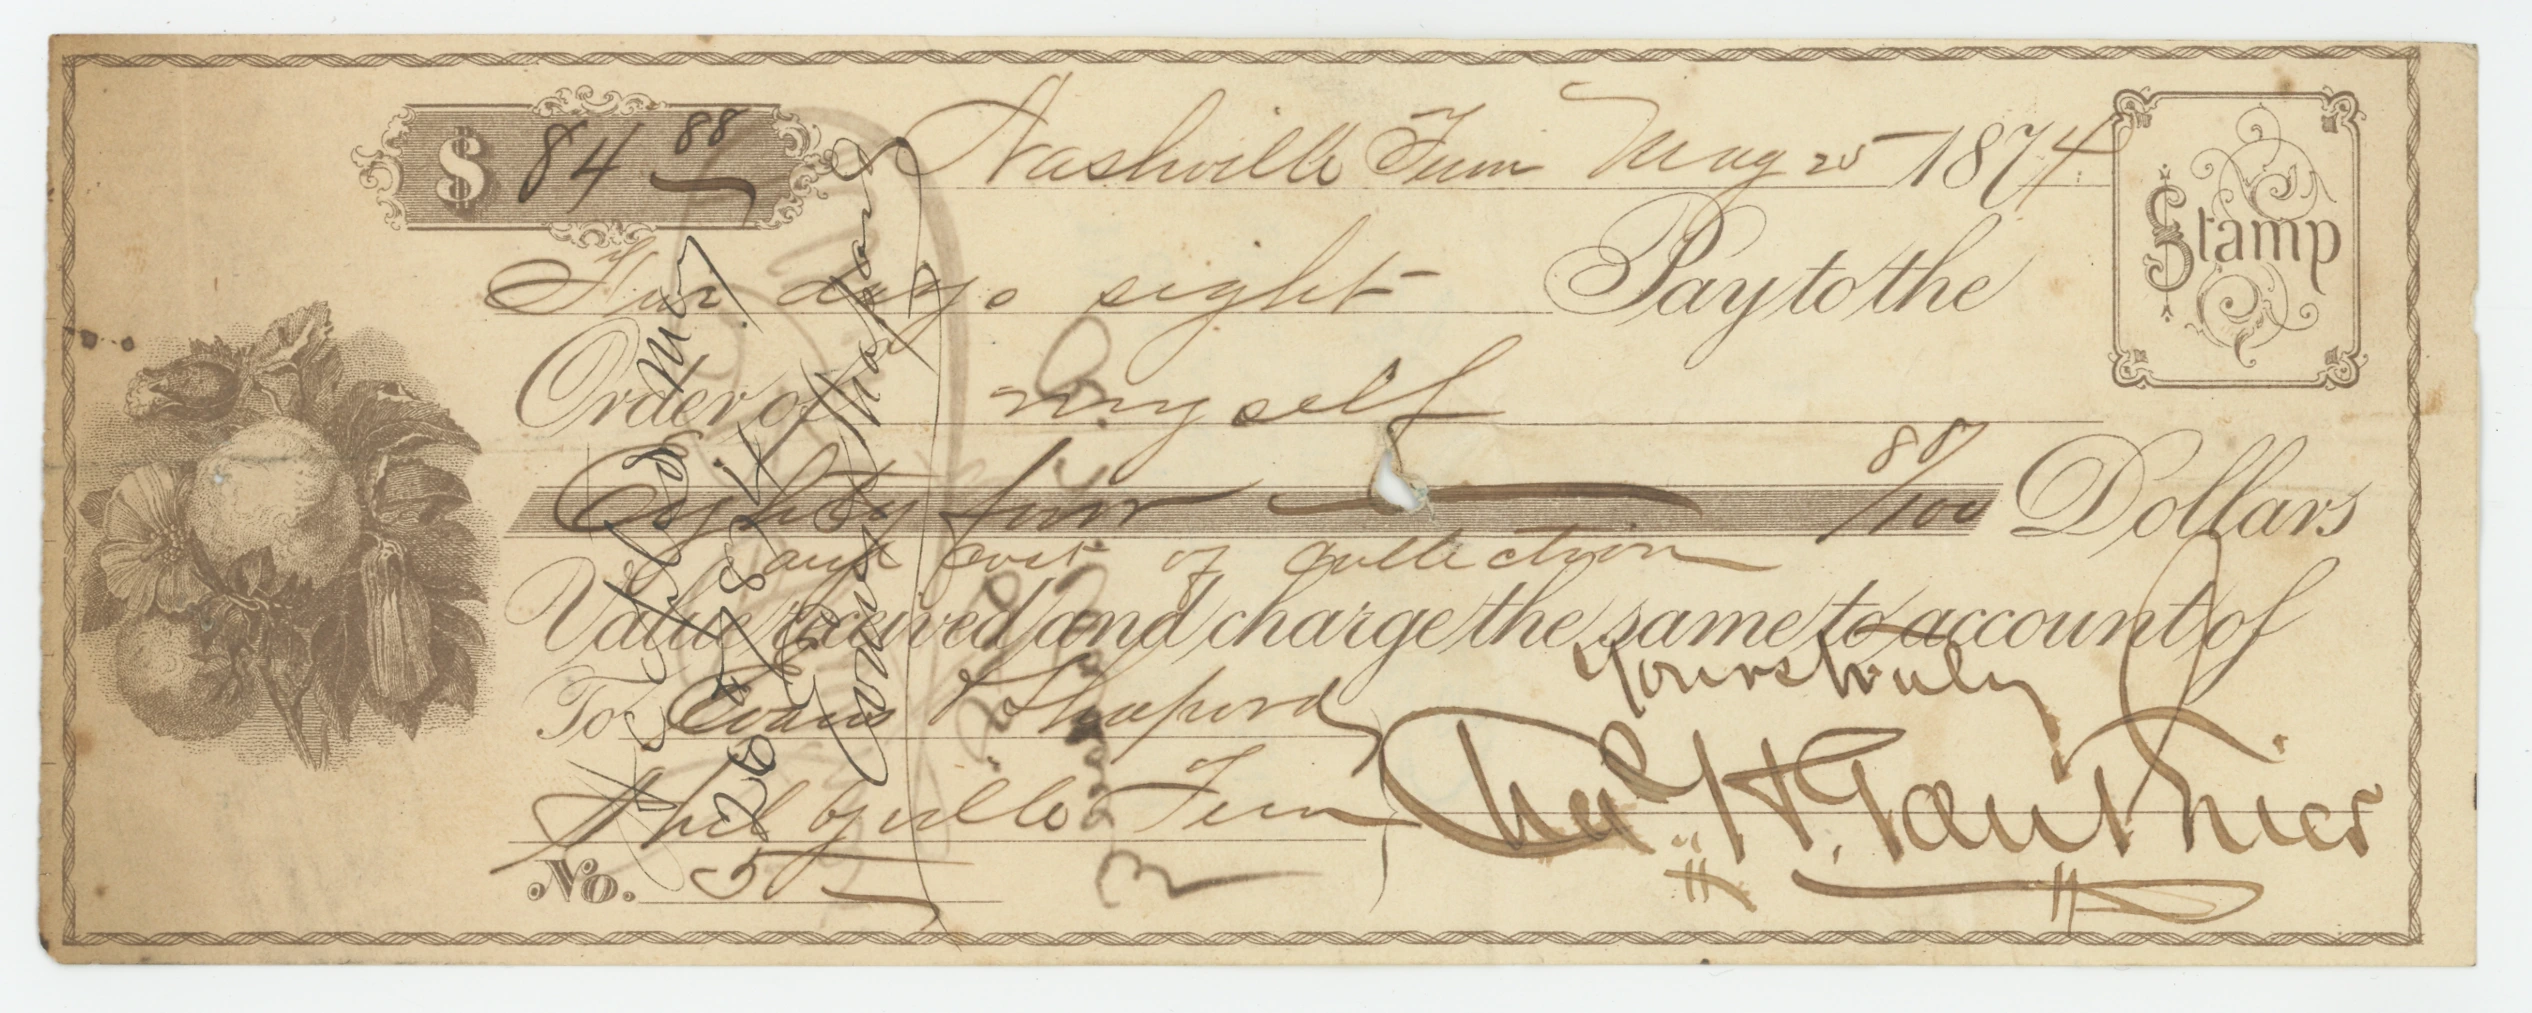 $ 84 88
Nashville Tenn May 25 1874
Stamp
days sight Pay to the
Order of myself
Eighty four 88/100 Dollars
and cost of collection
Value received and charge the same to account of
Yours truly
To Evans & Shepard
Shelbyville Tenn
Chas. H. Gauthier
No. 5
Accepted May
26 1874
Evans & Shepard